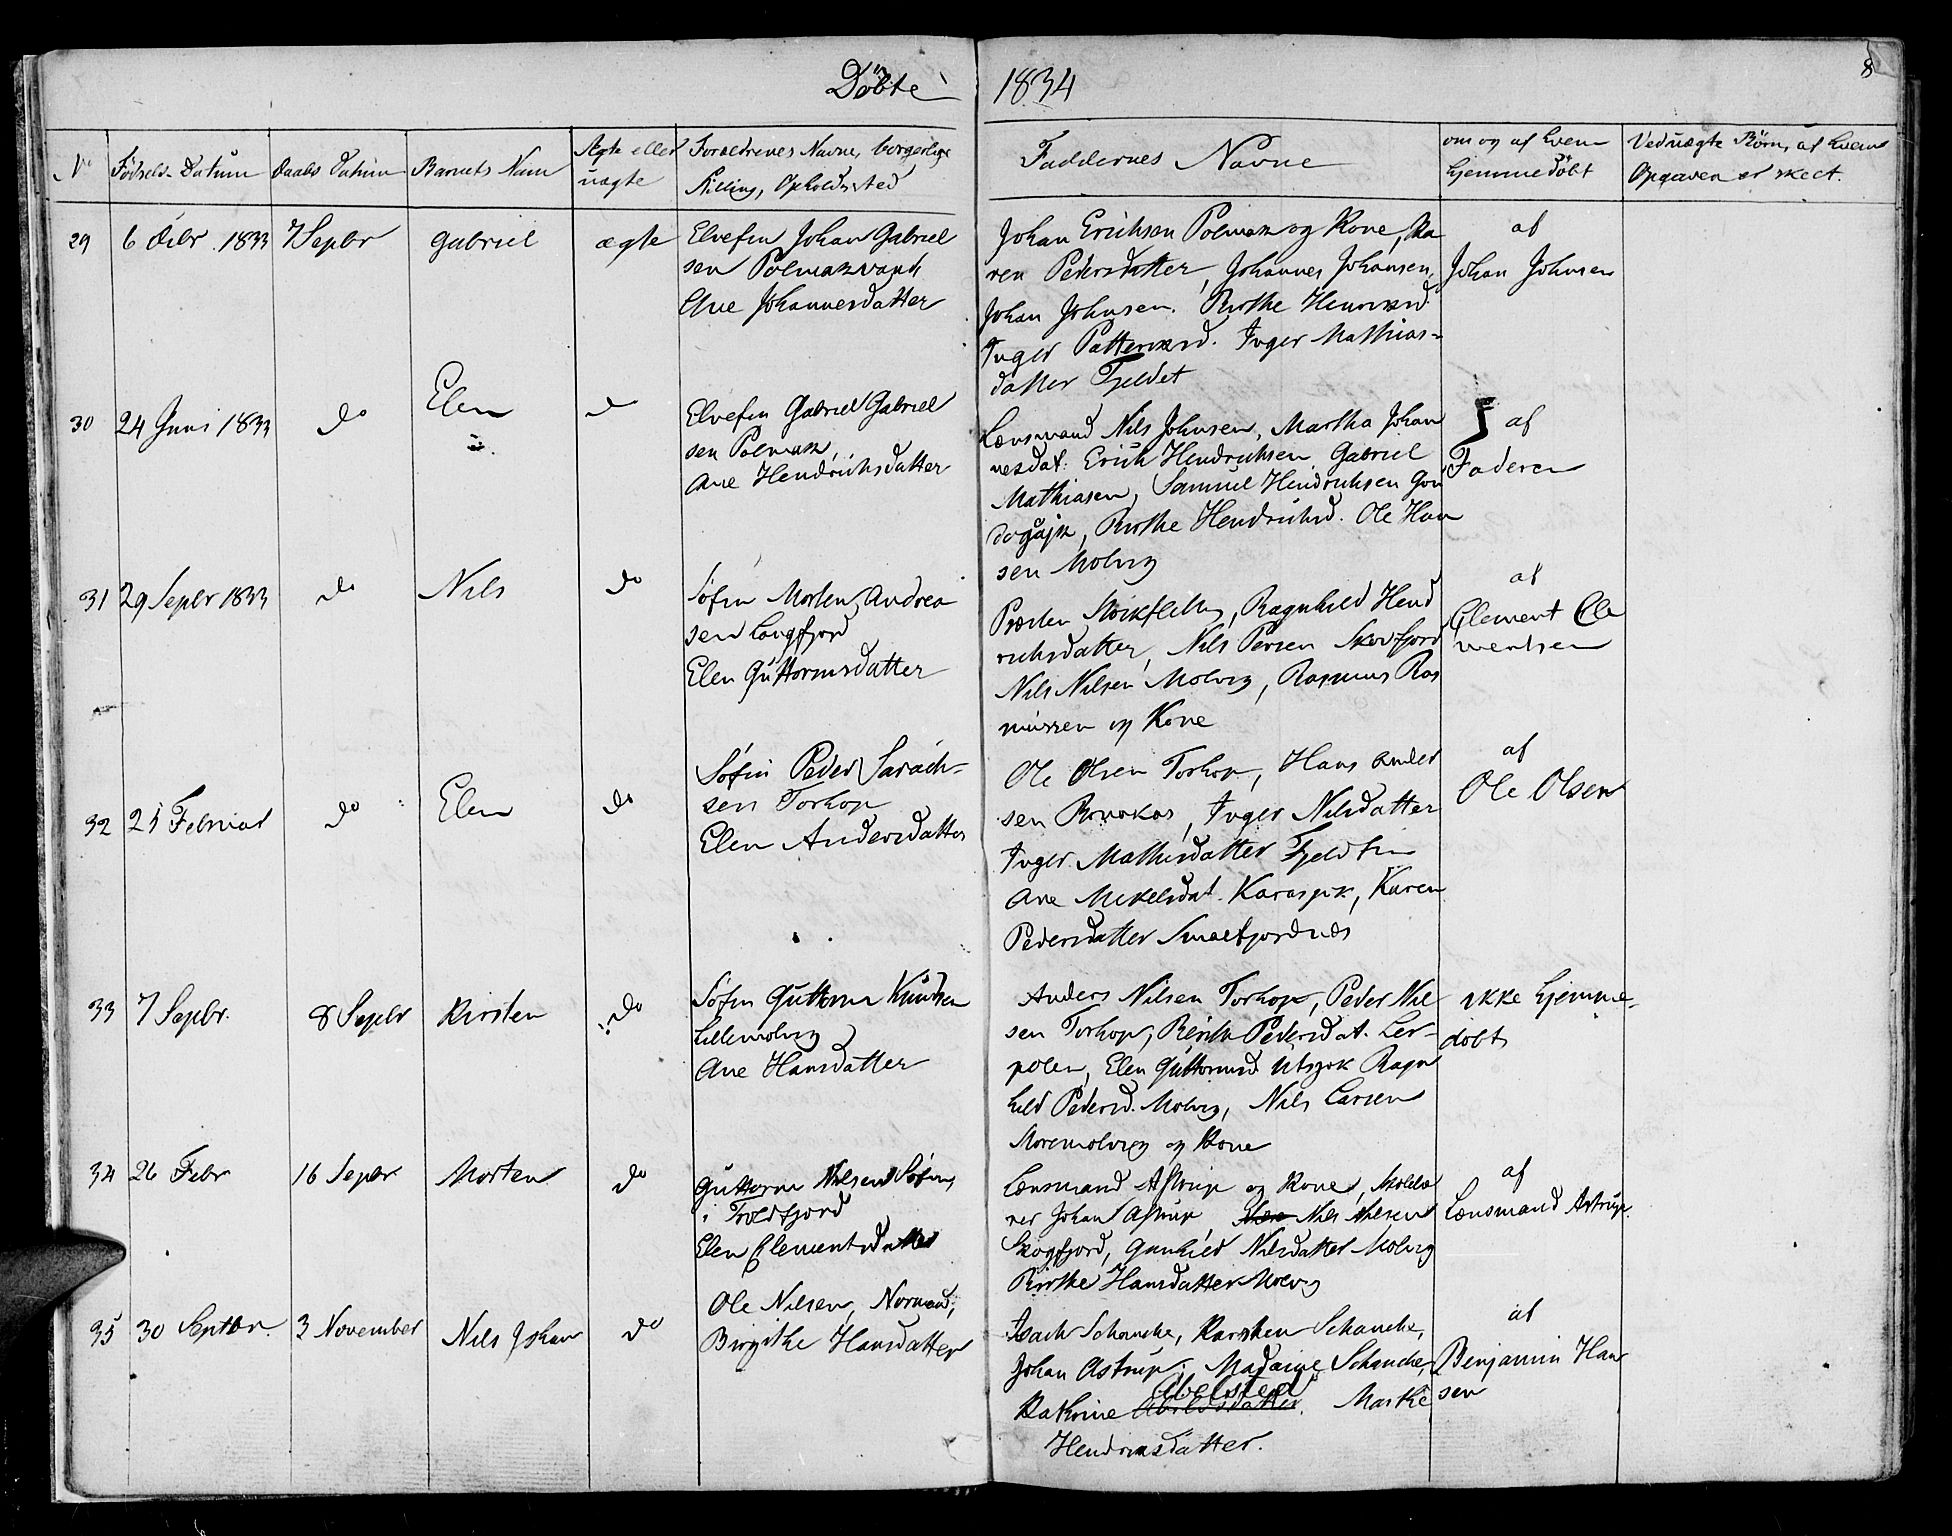 Döbte 1834
8
No
Fødsels Datum
Daabs Datum
Barnets Navn
Ægte eller
uægte
Forældrenes Navne, borgerlige
Stilling, Opholdssted
Faddernes Navne
om og af hvem
hjemmedöbt
Ved uægte Börn, af hvem
Opgaven er skeet.
29 6 Debr. 1833 7 Sepbr Gabriel ægte
Elvefin Johan Gabriel
sen Polmakvand
Ane Johannesdatter
Johan Erichsen Polmak og Kone, Ka
ren Pedersdatter, Johannes Johansen,
Johan Johnsen. Birthe Henriksd
Inger Pattersd. Inger Mathias-
datter Fjeldet
af
Johan Johnsen
30 24 Juni 1833 do Elen do
Elvefin Gabriel Gabriel
sen Polmak,
Ane Hendrichsdatter
Lænsmand Nils Johnsen, Martha Johan
nesdat. Erich Hendrichsen Gabriel
Mathiasen, Samuel Hendrichsen
Birthe Hendrichsd. Ole Han
sen Molvig
af
Faderen
31 29 Sepbr 1833 do Nils do
Söfin Morten Andrea
sen Langfjord
Elen Guttormsdatter
Præsten Stockfleth, Ragnhild Hend
richsdatter, Nils Persen Skovfjord
Nils Nilsen Molvig, Rasmus Ras
mussen og Kone
af
Clement Cle
mentsen
32 25 Februar do Elen do
Söfin Peder Sarach-
sen Torhop
Elen Andersdatter
Ole Olsen Torhop, Hans Ander
sen Bonakas, Inger Nilsdatter
Inger Mathisdatter Fjeldfin
Ane Mikelsdat. Karasjok, Karen
Pedersdatter Smalfjordnæs
af
Ole Olsen
33 7 Sepbr. 8 Sepbr Kirsten do
Söfin Guttorm Knudsen
Lillemolvig
Ane Hansdatter
Anders Nilsen Torhop, Peder Nil
sen Torhop, Berith Pedersdat. Ler-
polen, Elen Guttormsd Utsjok Ragn
hild Pedersd. Molvig, Nils Larsen
Storemolvig og Kone
ikke hjemme-
döbt
34 26 Febr 16 Sepbr Morten do
Guttorm Nilsen Söfin
i Troldfjord
Elen Clementsdatter
Lænsmand Astrup og Kone, Skolelæ
rer Johan Astrup, Nils Nilsen
Skogfjord, Gunhild Nilsdatter Molvig
Birthe Hansdatter Molvig
af
Lænsmand Astrup.
35 30 Septbr. 3 November Nils Johan do
Ole Nilsen, Normand,
Birgithe Hansdatter
Isach Schanche, Karsten Schanche,
Johan Astrup. Madame Schanche,
Abelsted
Kathrine Abelsdatter. Marthe
Hendriksdatter.
af
Benjamin Han
sen